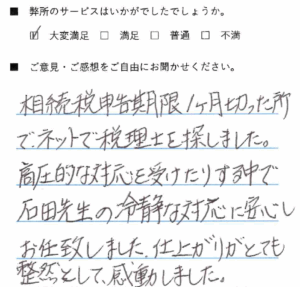 ■ 弊所のサービスはいかがでしたでしょうか。
☑ 大変満足 □ 満足 □ 普通 □ 不満
■ ご意見・ご感想をご自由にお聞かせください。
相続税申告期限1ヶ月切った所
で、ネットで税理士を探しました。
高圧的な対応を受けたりする中で
石田先生の冷静な対応に安心し
お任致しました。仕上がりがとても
整然として、感動しました。